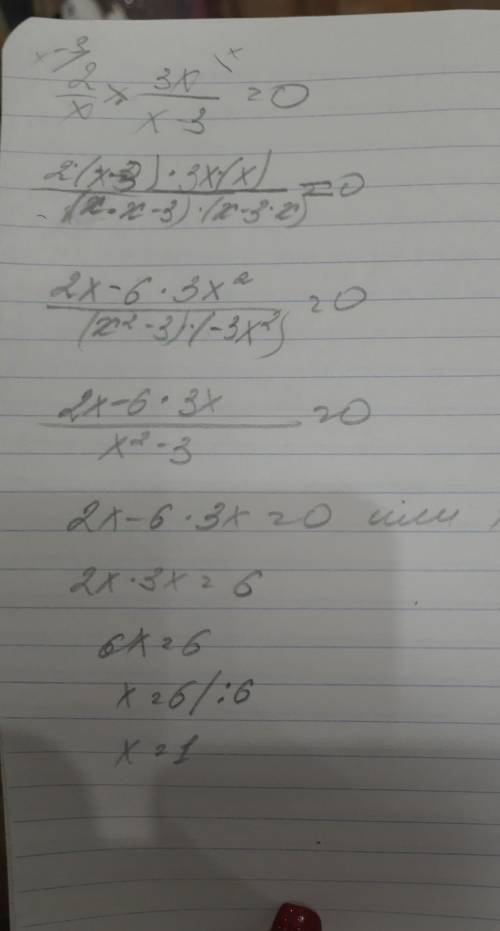 x-3 x
2/x × 3x/x-3 = 0
2·(x-3)·3x·(x)/(x·x-3)·(x-3·x) = 0
2x-6·3x²/(x²-3)·(-3x²) = 0
2x-6·3x/x²-3 = 0
2x-6·3x=0 или
2x·3x=6
6x=6
x=6/:6
x=1